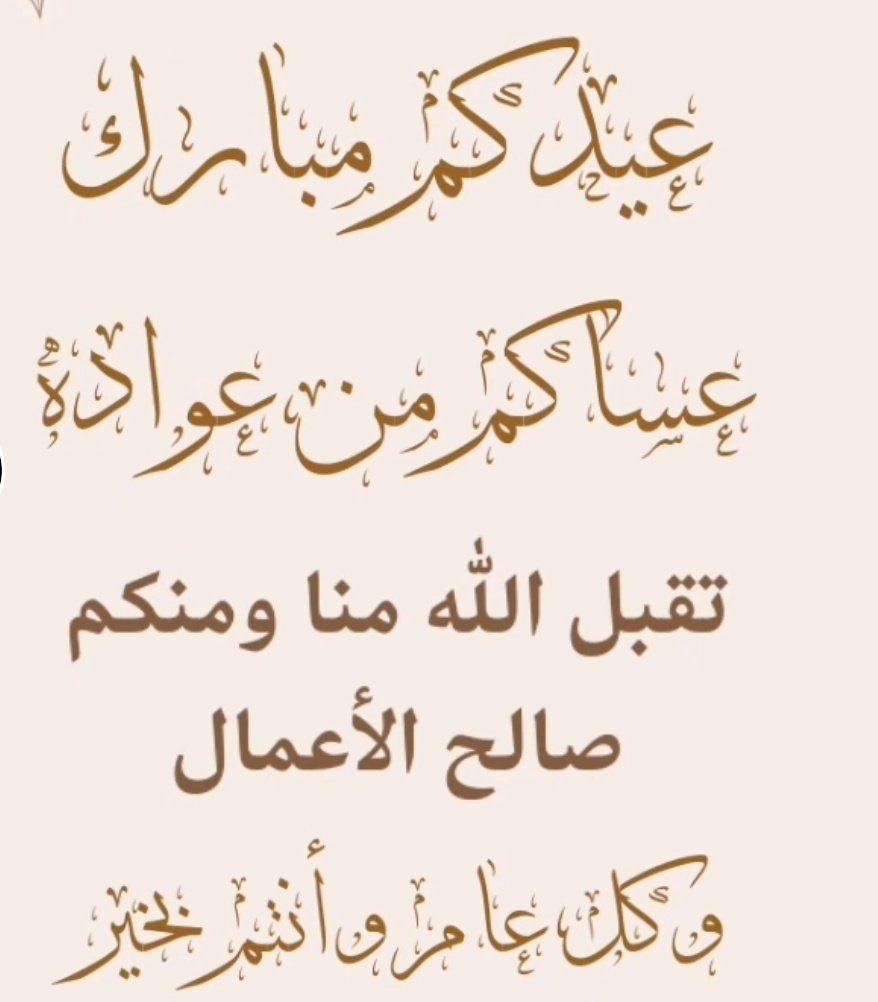 عيدكم مبارك
عساكم من عواده
تقبل الله منا ومنكم
صالح الأعمال
وكل عام وأنتم بخير